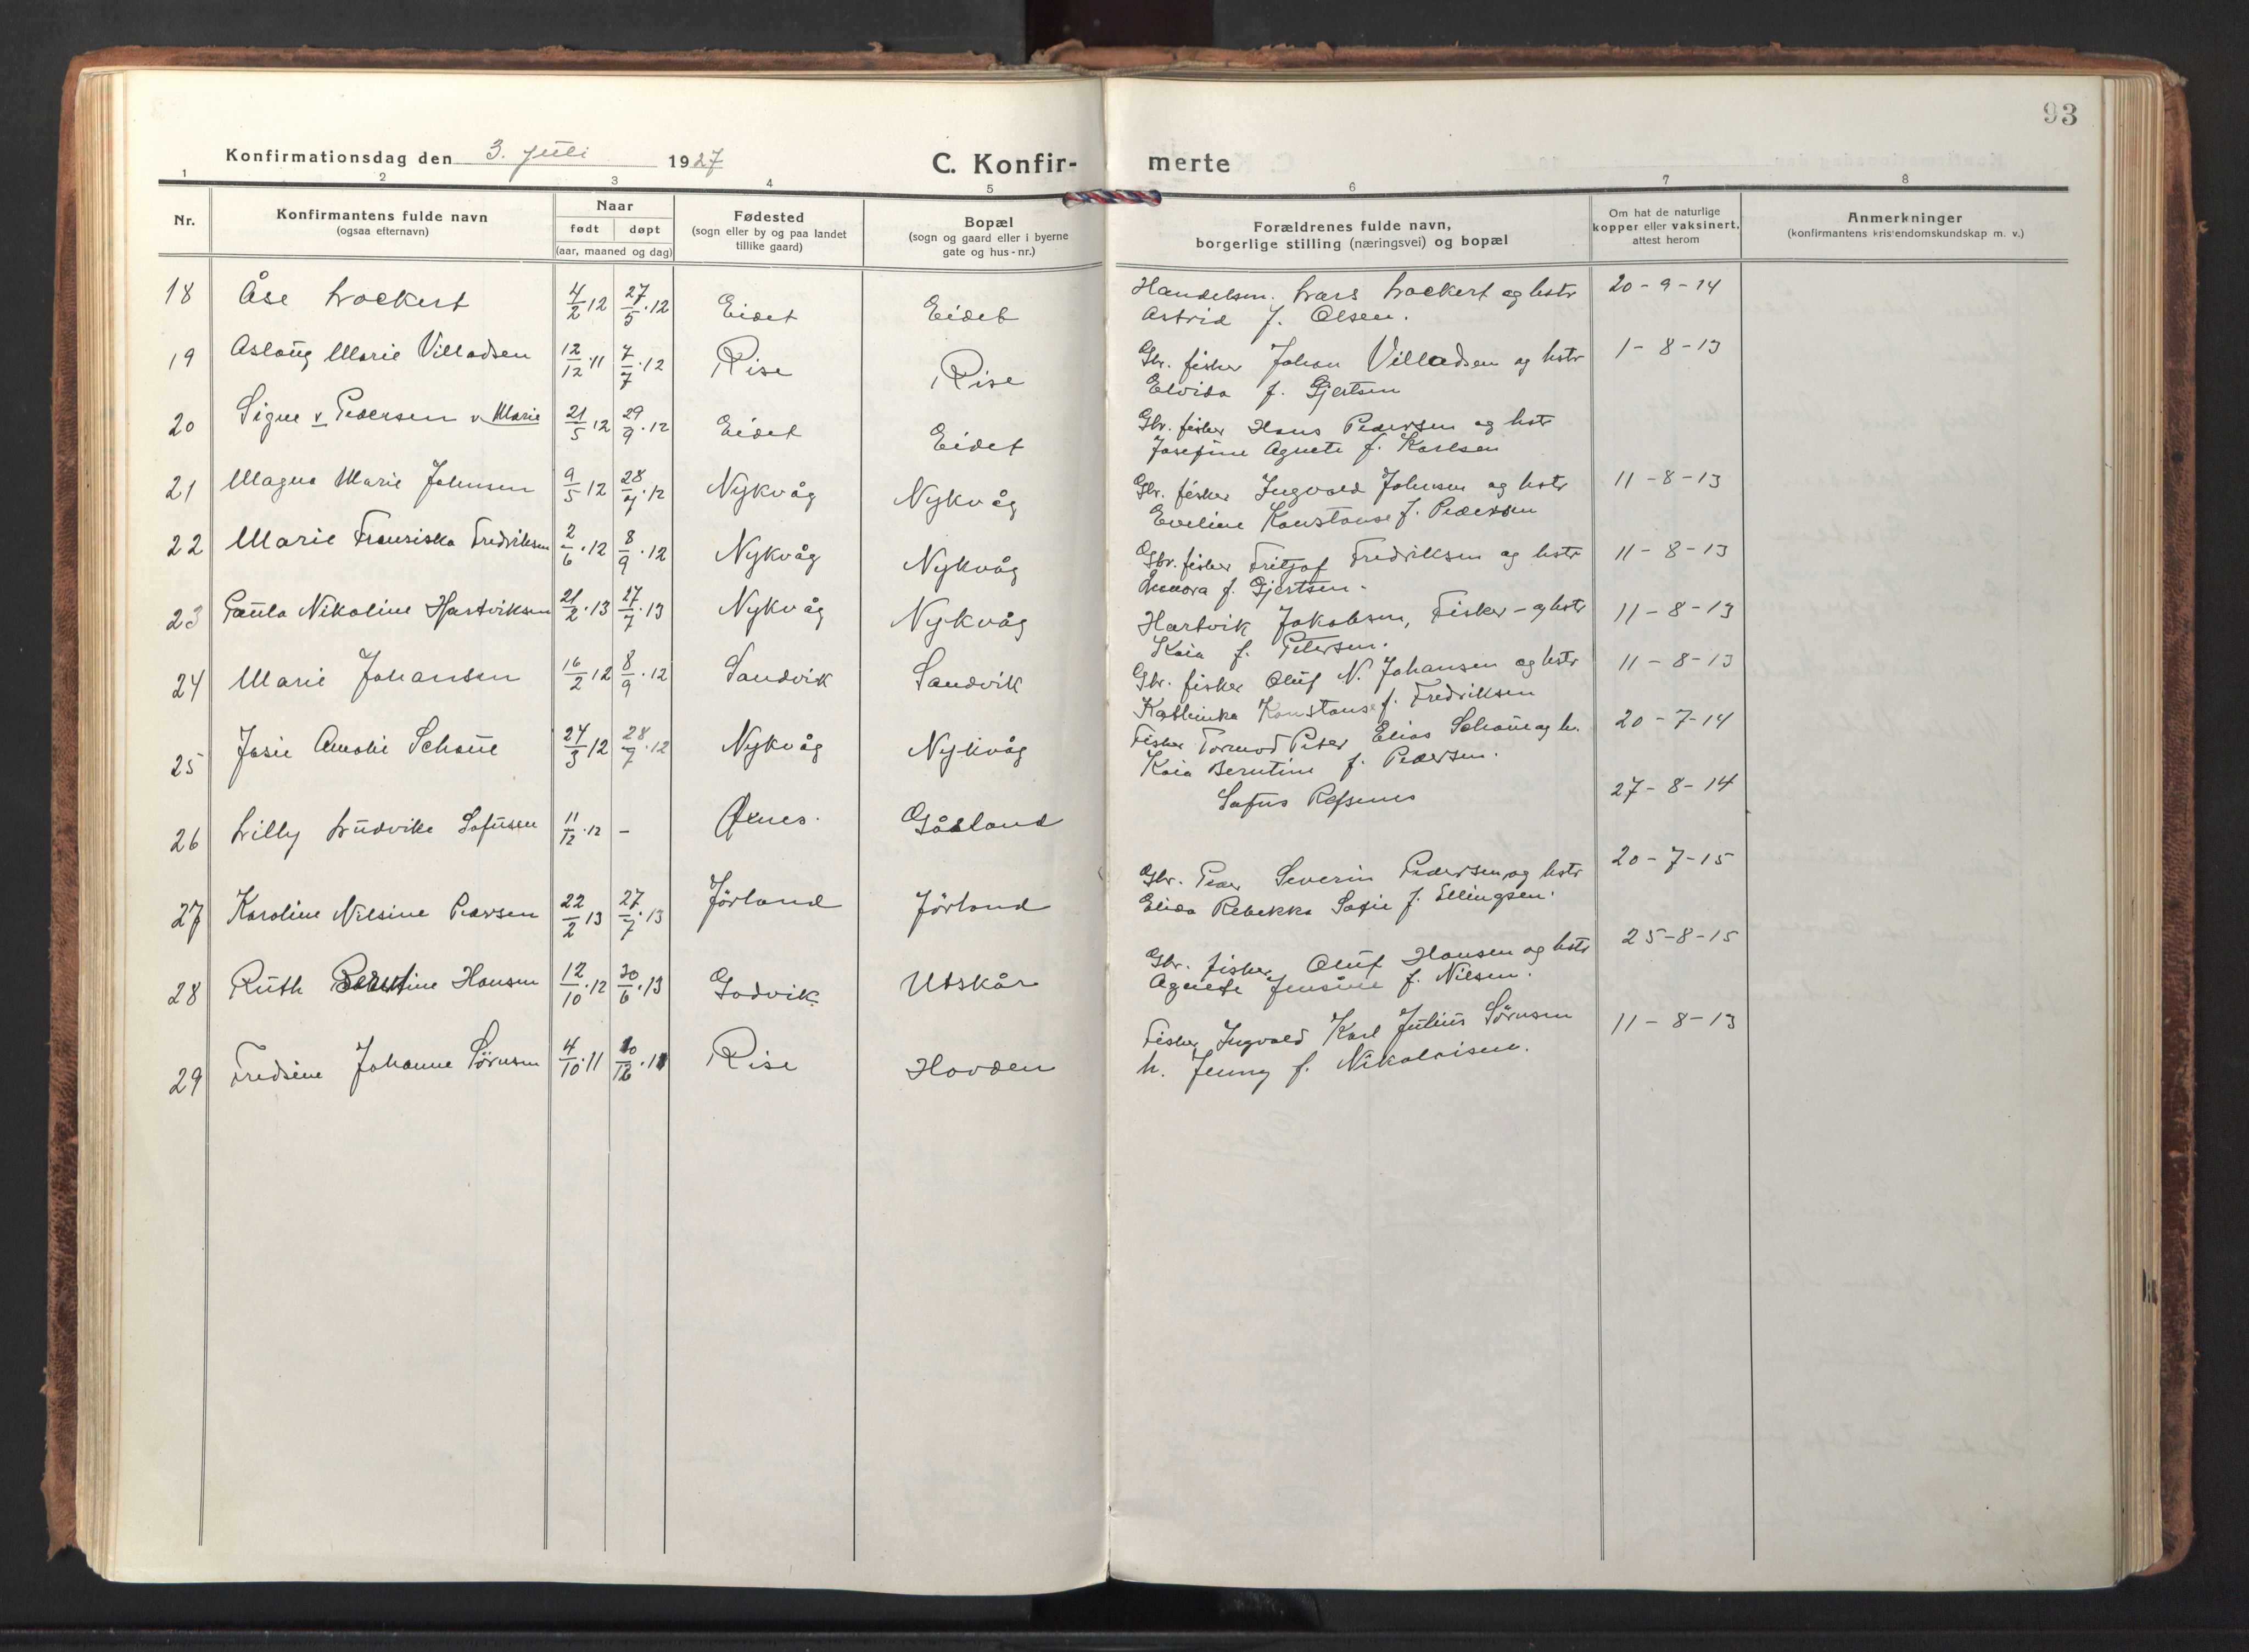 93
Konfirmationsdag den 3. juli 1927
C. Konfir- merte
1 2 3 4 5 6 7 8
Nr.
Konfirmantens fulde navn
(ogsaa efternavn)
Naar
født døpt
(aar, maaned og dag)
Fødested
(sogn eller by og paa landet
tillike gaard)
Bopæl
(sogn og gaard eller i byerne
gate og hus-nr.)
Forældrenes fulde navn,
borgerlige stilling (næringsvei) og bopæl
Om hat de naturlige
kopper eller vaksinert,
attest herom
Anmerkninger
(konfirmantens kristendomskundskap m. v.)
18 Åse Lockert 4/2 12 27/5 . 12 Eidet Eidet Handelsm. Lars Lockert og hstr 20-9-14
Astrid f. Olsen.
19 Aslaug Marie Villadsen 12/12 . 11 7/7 . 12 Rise Rise Gbr. fisker Johan Villadsen og hstr 1-8-13
Elvida f. Gjertsen
20 Signe v Pedersen v. Marie 21/5 12 29/9 . 12 Eidet Eidet Gbr. fisker Hans Pedersen og hstr
Josefine Agnete f. Karlsen
21 Magna Marie Johnsen 9/5 12 28/7 . 12 Nykvåg Nykvåg Gbr. fisker Ingvald Johnsen og hstr 11-8-13
Eveline Konstanse f. Pedersen
22 Marie Fransiska Fredriksen 2/6 . 12 8/9 . 12 Nykvåg Nykvåg Gbr. fisker Fritjof Fredriksen og hstr 11-8-13
f. Gjertsen -
23 Paula Nikoline Hartviksen 21/2 . 13 27/7 . 13 Nykvåg Nykvåg Hartvik Jakobsen, Fisker - og hstr 11-8-13
Kaia f. Petersen.
24 Marie Johansen 16/2 12 8/9 . 12 Sandvik Sandvik Gbr. fisker Oluf N. Johansen og hstr 11-8-13
Kathinka Konstanse f. Fredriksen
25 Josie Amalie Schaue 24/3 12 28/7 . 12 Nykvåg Nykvåg Fisker Tormod Peter Elias Schaue og h. 20-7-14
Kaia Berntine f. Pedersen.
26 Lilly Ludvike Sofusen 11/12 . 12 - Øxnes. Gåsland Sofus Refsnes 27-8-14
27 Karoline Nilsine Pedersen 22/2 13 27/7 . 13 Jörland Jörland Gbr. Peder Severin Pedersen og hstr 20-7-15
Elida Rebekka Sofie f. Ellingsen.
28 Ruth Berntine Hansen 12/10 . 12 30/6 . 13 Godvik Utskår Gbr. fisker Oluf Hansen og hstr 25-8-15
Agnete Jensine f. Nilsen.
29 Fredsine Johanne Sörensen 4/10 . 11 10/12 . 11 Rise Hovden Fisker Ingvald Karl Julius Sörensen 11-8-13
h. Jenny f. Nikolaisen.